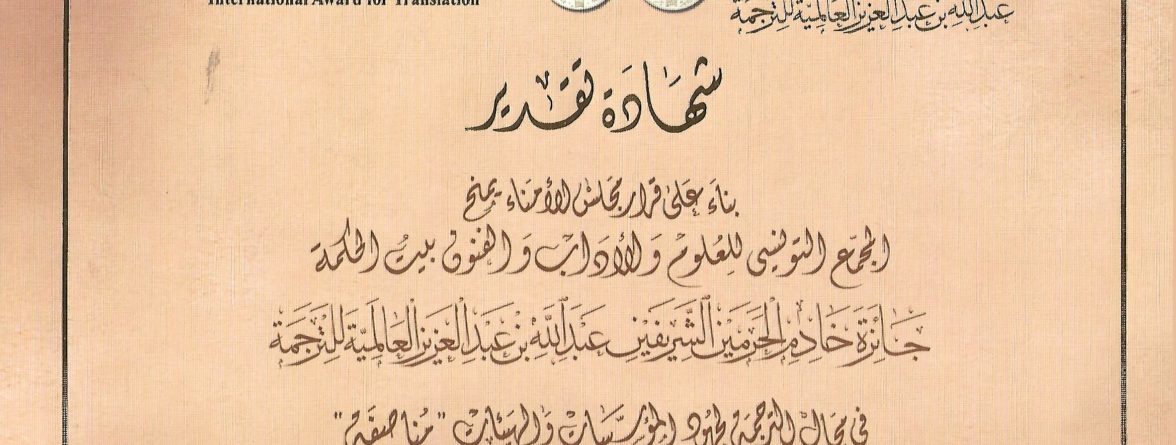 International Award for Translation
عبدالله بن عبدالعزيز العالمية للترجمة
شهادة تقدير
بناء على قرار مجلس الأمناء يمنح
المجمع التونسي للعلوم والأداب والفنون بيت الحكمة
جائزة خادم الحرمين الشريفين عبدالله بن عبدالعزيز العالمية للترجمة
في مجال الترجمة لجهود المؤسسات والهيئات "مناصفة"